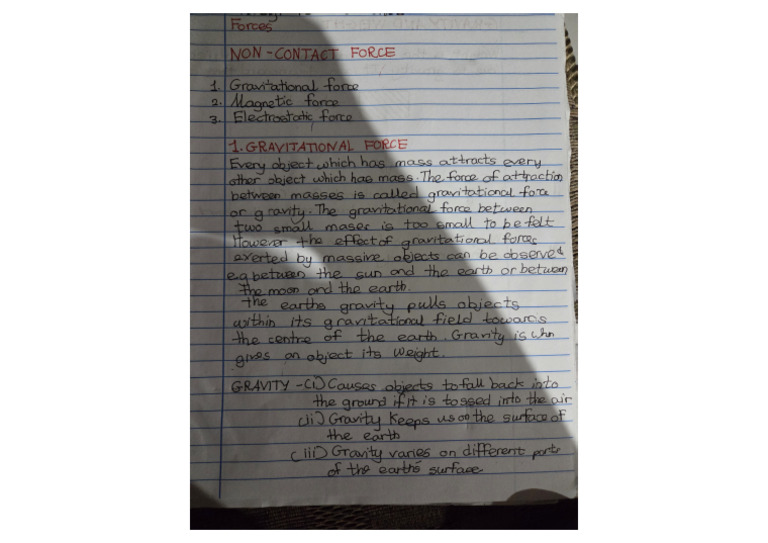 Forces
NON-CONTACT FORCE
1. Gravitational force
2. Magnetic force
3. Electrostatic force
1. GRAVITATIONAL FORCE
Every object which has mass attracts every
other object which has mass. The force of attraction
between masses is called gravitational force
or gravity. The gravitational force between
two small masses is too small to be felt
However the effect of gravitational forces
exerted by massive objects can be observed
e.g between the sun and the earth or between
the moon and the earth.
The earths gravity pulls objects
within its gravitational field towards
the centre of the earth. Gravity is wh
gives an object its weight.
GRAVITY - (i) Causes objects to fall back into
the ground if it is tossed into the air
(ii) Gravity keeps us on the surface of
the earth
(iii) Gravity varies on different parts
of the earth's surface